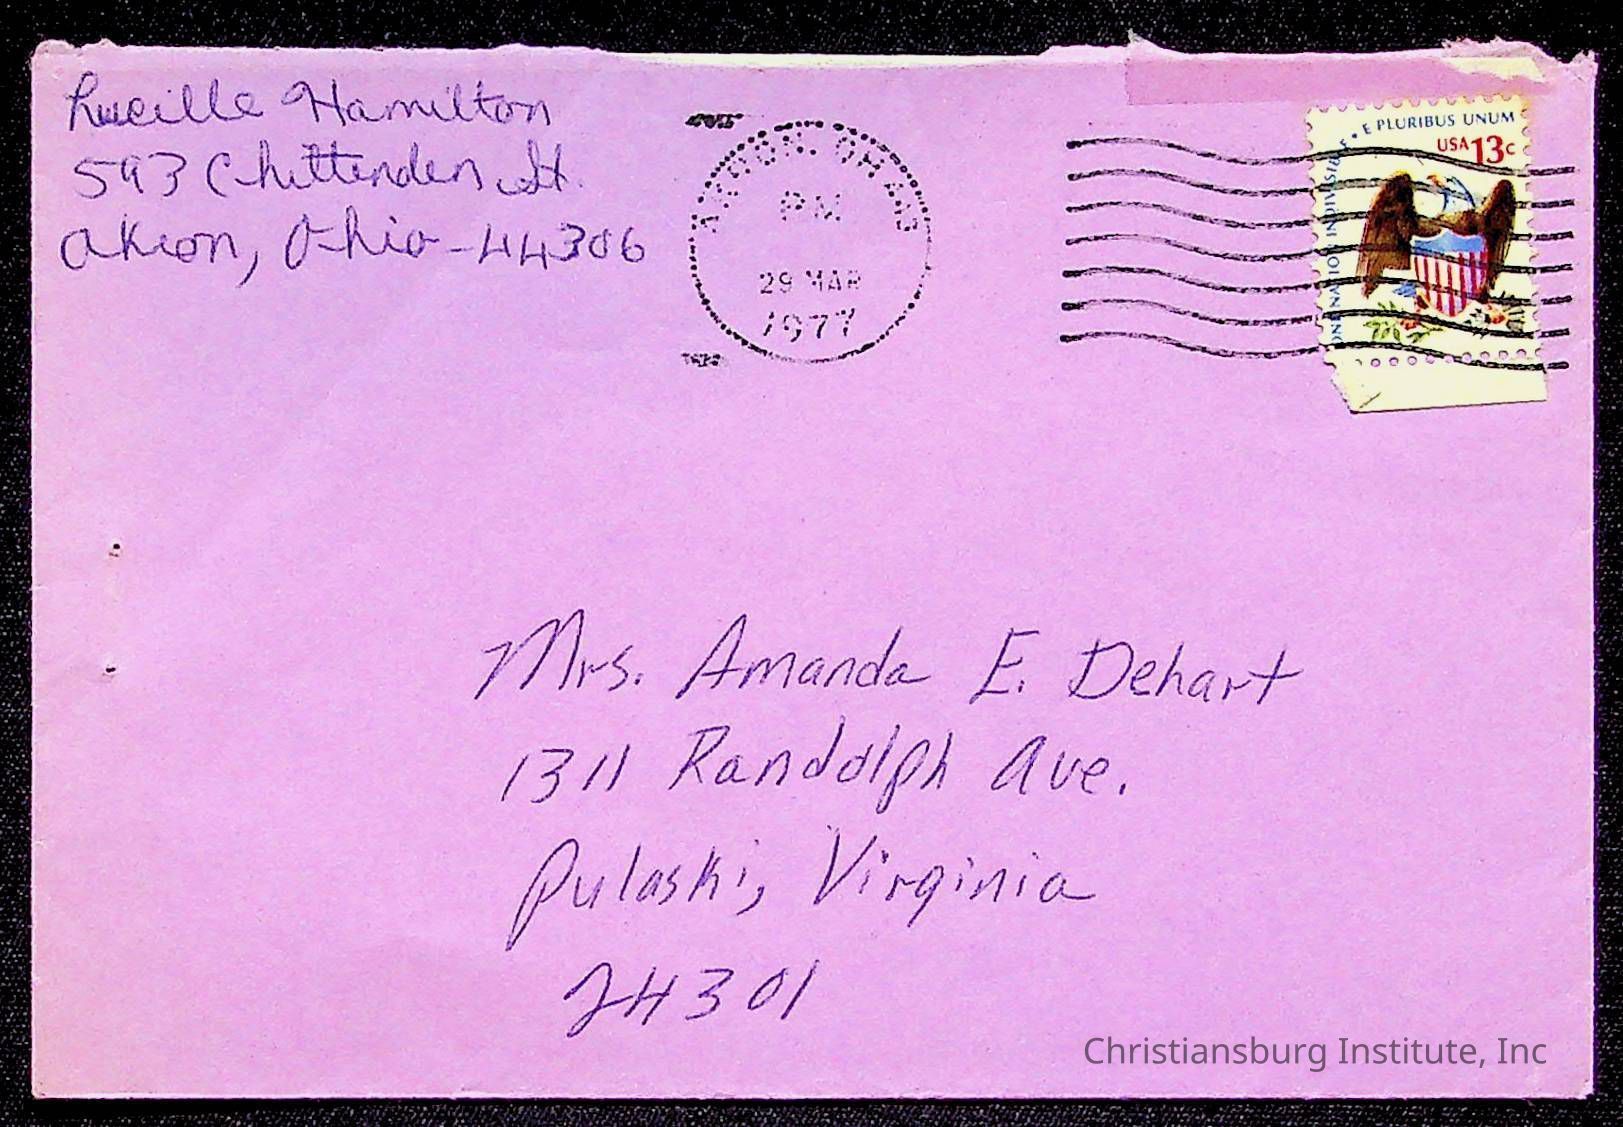 Lucille Hamilton
593 Chittenden St.
Akron, Ohio - 44306
AKRON, OH 443
PM
29 MAR
1977
ONE NATION INDIVISIBLE • E PLURIBUS UNUM
USA 13c
Mrs. Amanda E. Dehart
1311 Randolph Ave.
Pulaski, Virginia
24301
Christiansburg Institute, Inc